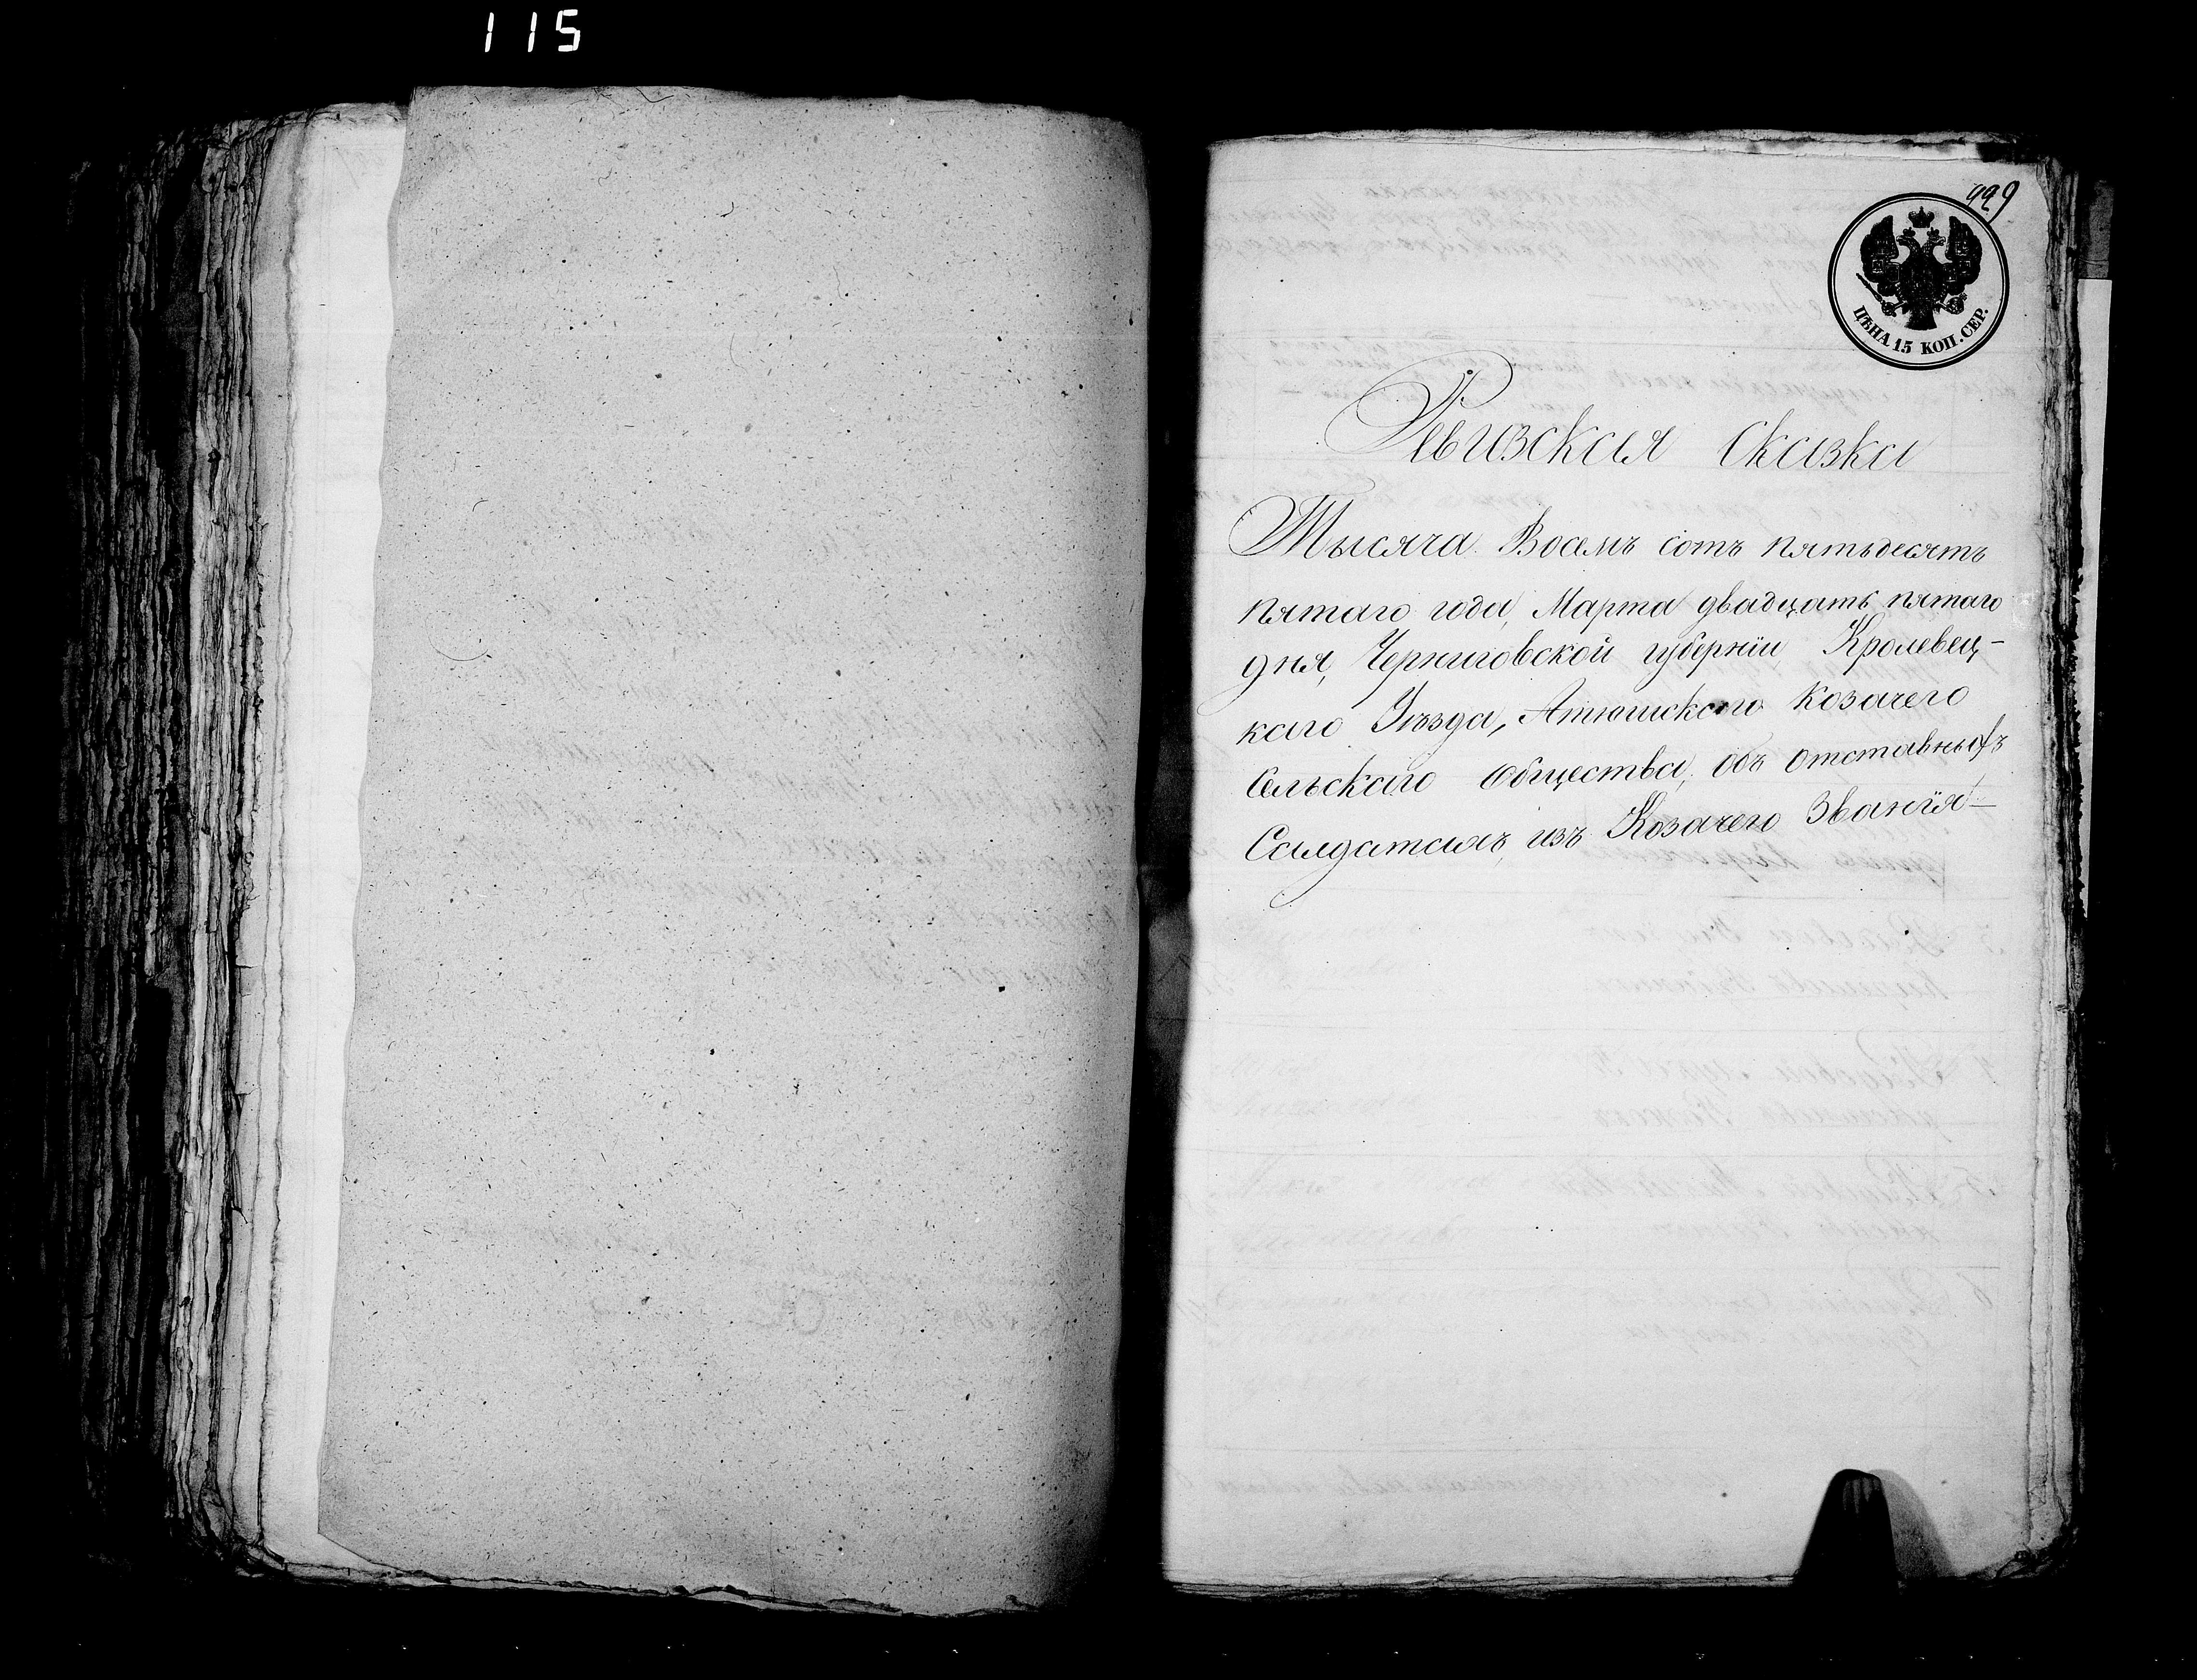 115
999
ЦѢНА 15 КОП. СЕР.
Ревизская Сказка
Тысяча Восемъ сотъ пятьдесятъ
пятаго года, Марта двадцать пятаго
дня, Черниговской губерніи, Кролевец-
каго Уѣзда, Атюшскаго козачего
Сельскаго Общества, объ отставныхъ
Салдатахъ, изъ Козачего Званія